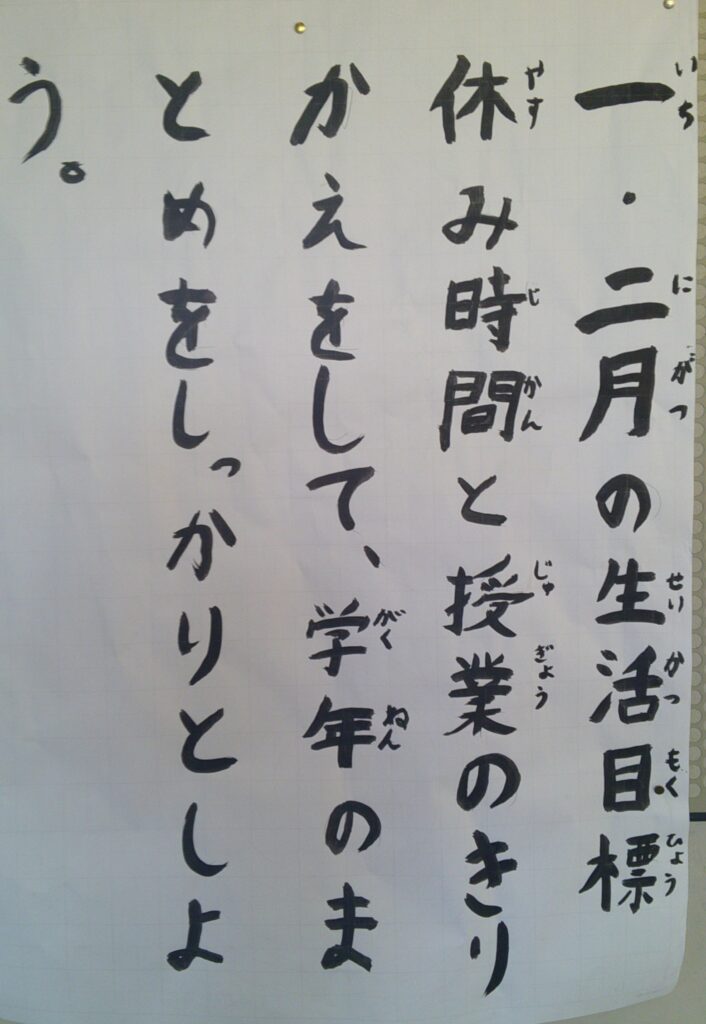 一・二月の生活目標
休み時間と授業のきり
かえをして、学年のま
とめをしっかりとしよ
う。